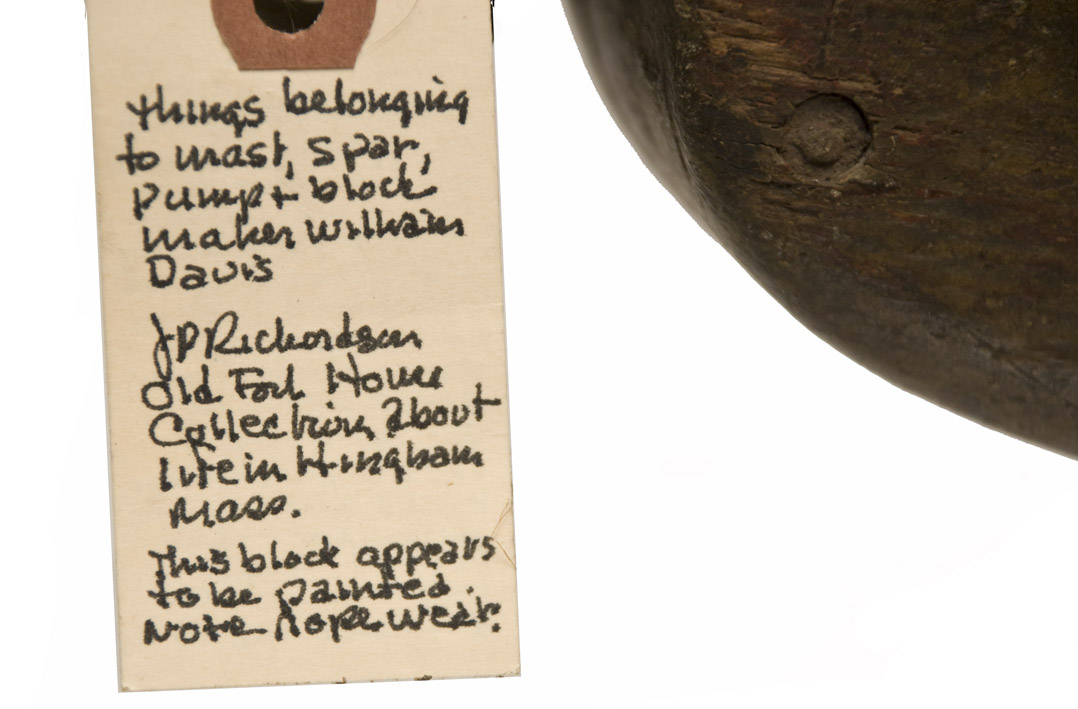 things belonging
to mast, spar,
pump + block
maker William
Davis
JP Richardson
Old Fort House
Collection about
life in Hingham
Mass.
This block appears
to be painted.
Note rope wear.